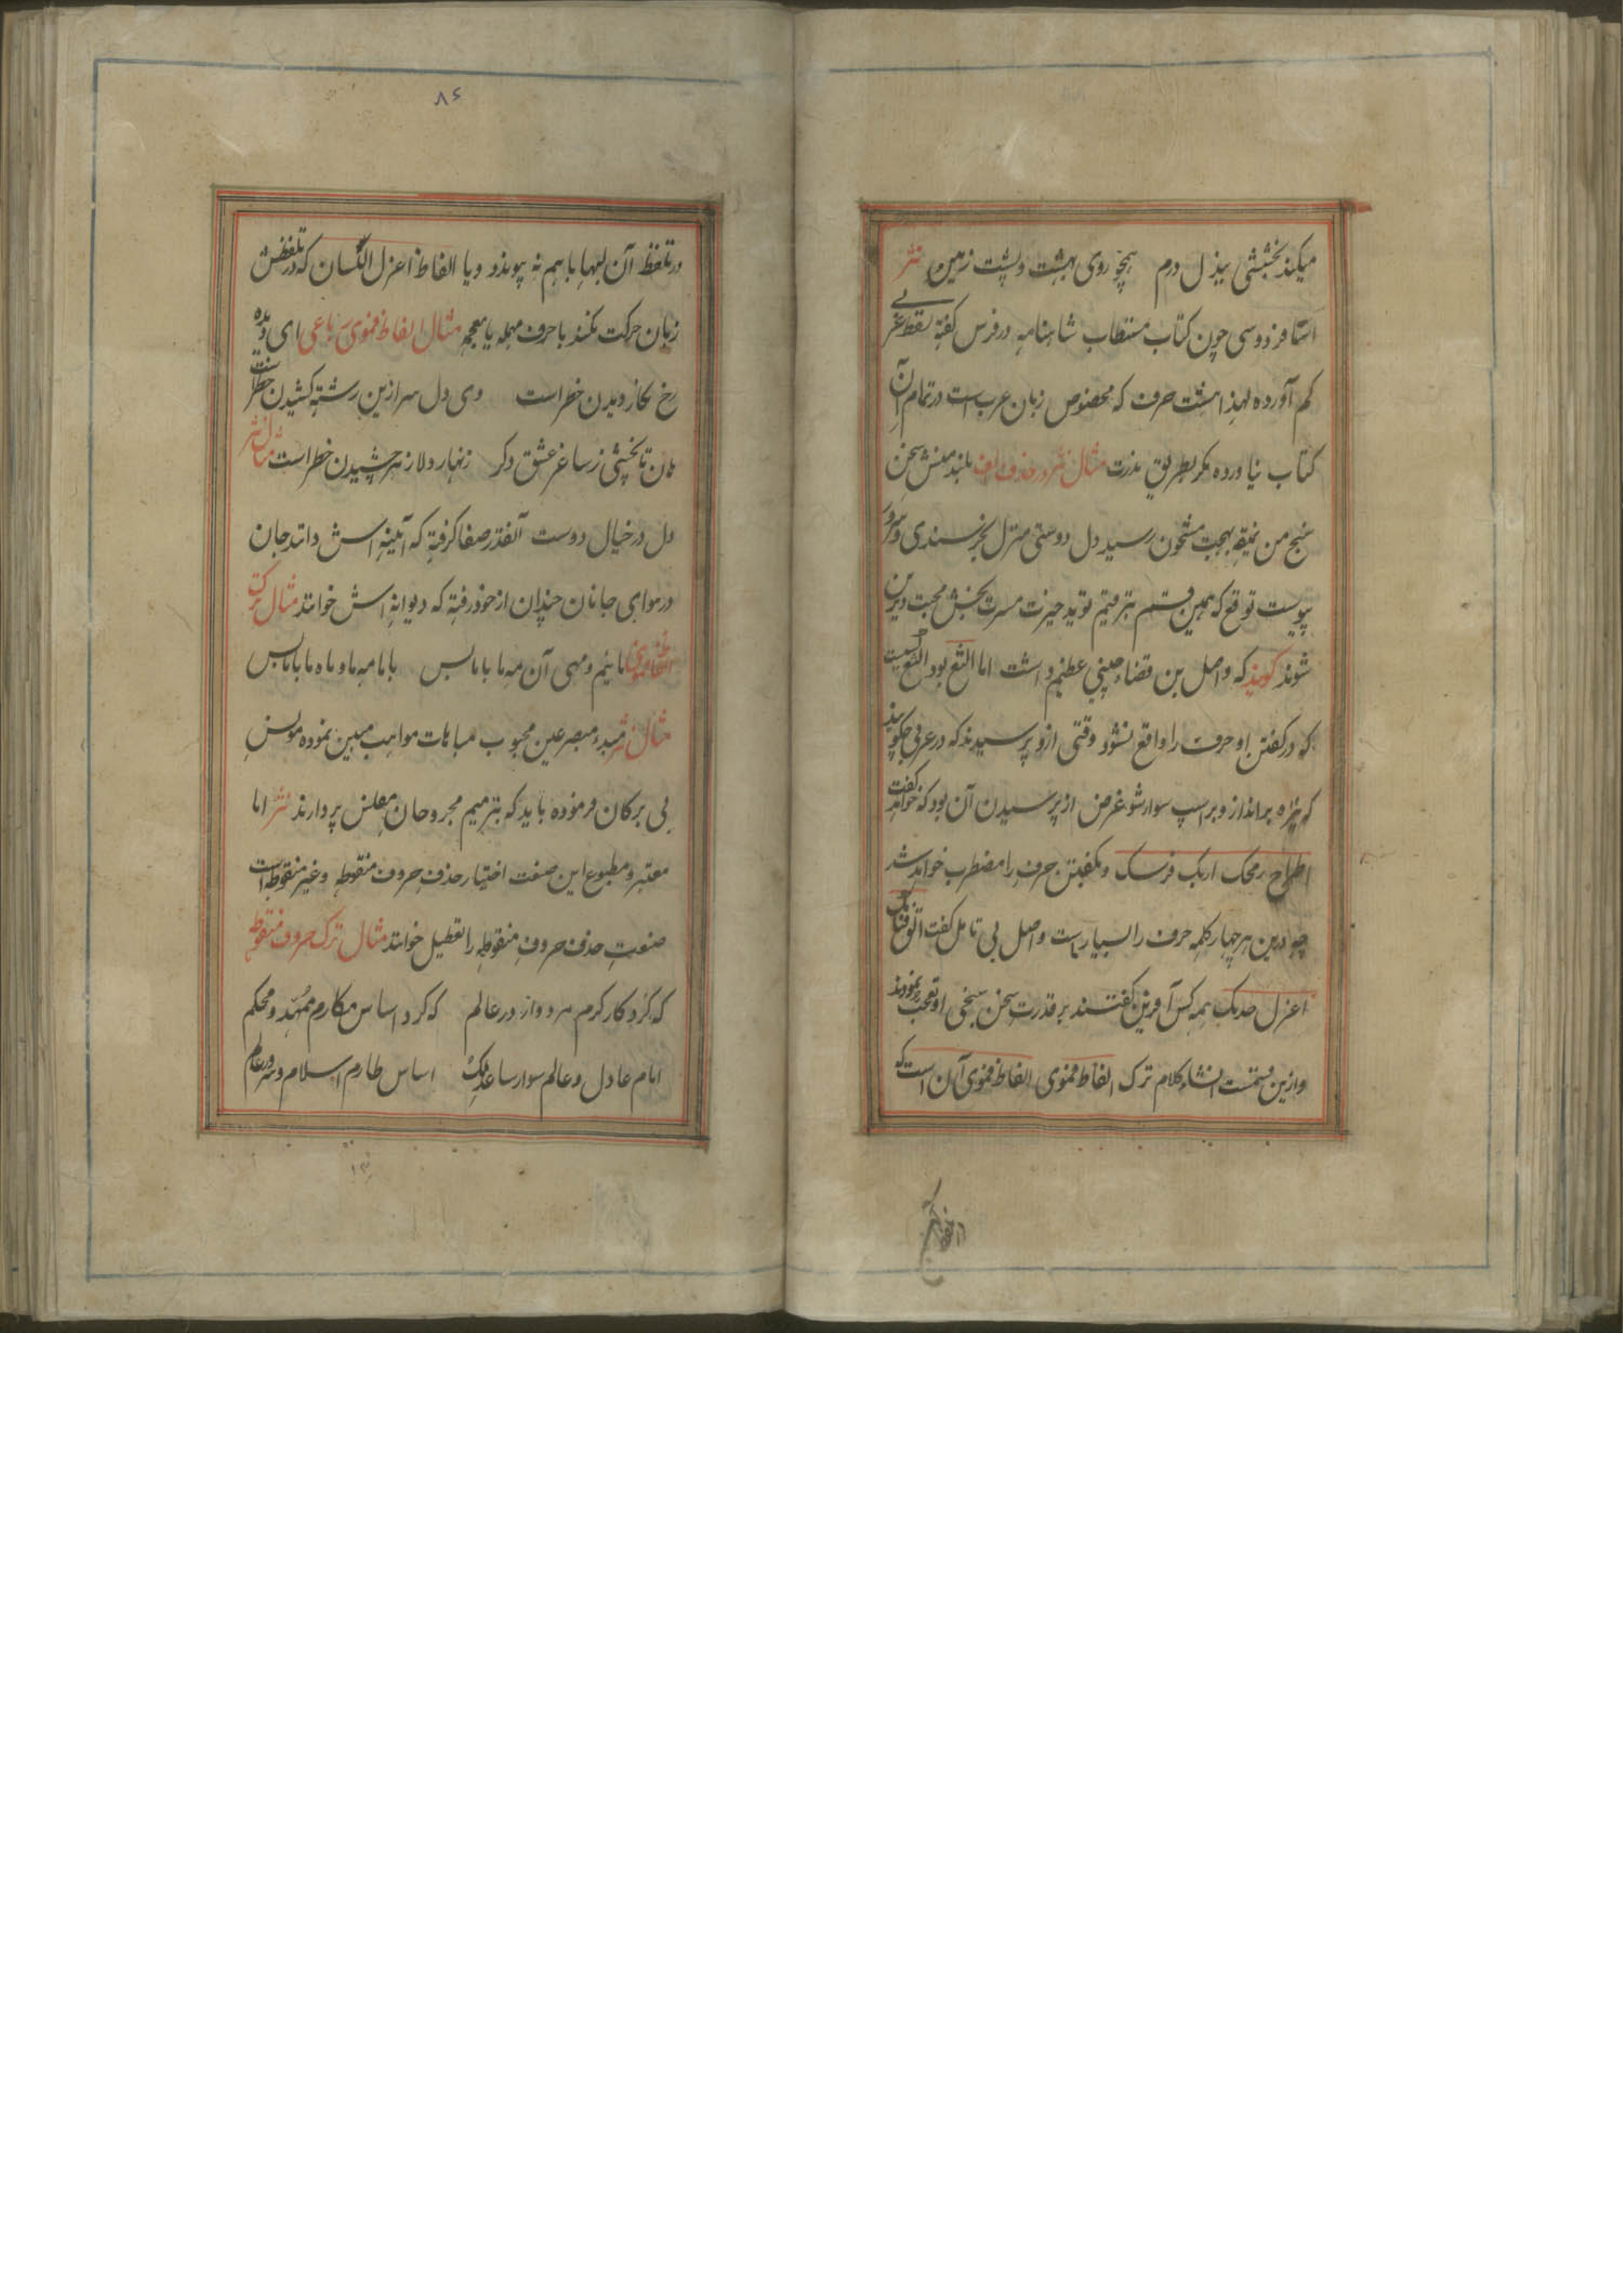 میکند بخششی ببذل درم همچو روی بهشت و پشت زمین نثر
استا فردوسی چون کتاب مستطاب شاهنامه در فرس کفته لفظ عربی
کم آورده لهذا هشت حرف که مخصوص زبان عرب است در تمام آن
کتاب نیاورده مکر بطریق ندرت مثال نثر در حذف الف بلند منش سخن
سنج من نمیقه بهجت مشحون رسید دل دوستی منزل بخرسندی و سرور
پیوست توقع که همین قسم بترقیم نوید خیرت مسرت بخش محبت و
شوند کویند که واصل بن عطا داشت اما الثغ بود الثغ کسیست
که در کفتن او حرف را واقع نشود وقتی ازو پرسیدند که در عربی چکویند
که نیزه برانداز و بر اسپ سوار شو غرض از پرسیدن آن بود که خواهد کفت
اطرح رمحک ارکب فرسک و بکفتن حرف را مضطرب خواهد شد
چو درین هر چهار کلمه حرف را بسیار است واصل بی تامل کفت الق قناتک
اعزل همه کس آفرین کفتند بر قدرت سخن سنجی او تعجب نمودند
و ازین قسمست انشاء کلام ترک الفاظ فموی الفاظ فموی آن است که
۸۶
در تلفظ آن لبها با هم نه پیوندد و یا الفاظ اعزل اللسان که در تلفظش
زبان حرکت نکند با حرف مهمله یا معجمه مثال الفاظ فموی رباعی ای دیده
رخ نکار دیدن خطر است وی دل سر ازین رشته کشیدن خطر است
هان تا نخشی ز ساغر عشق دکر زنهار دلا زهر چشیدن خطر است مثال نثر
دل در خیال دوست آنقدر صفا کرفته که آیینه اش دانند جان
در هوای جانان چندان از خود رفته که دیوانه اش خوانند مثال ترک
الفاظ فموی مائیم و مهی آن مه ما با ما بس با ما مه ما و ماه ما با ما بس
مثال نثر مبصر عین محبوب مباهات مواهب مبین نموده مونس
بی برکان فرموده باید که بترمیم مجروحان مفلس پردازند نثر اما
معتبر و مطبوع این صنعت اختیار حذف حروف منقوطه و غیر منقوطه است
صنعت حذف حروف منقوطه را تعطیل خوانند مثال ترک حروف منقوطه
که کرد کار کرم مردوار در عالم که کرد اساس مکارم ممهد و محکم
امام عادل و عالم سوار ساعد ملک اساس طارم اسلام و سرور عالم